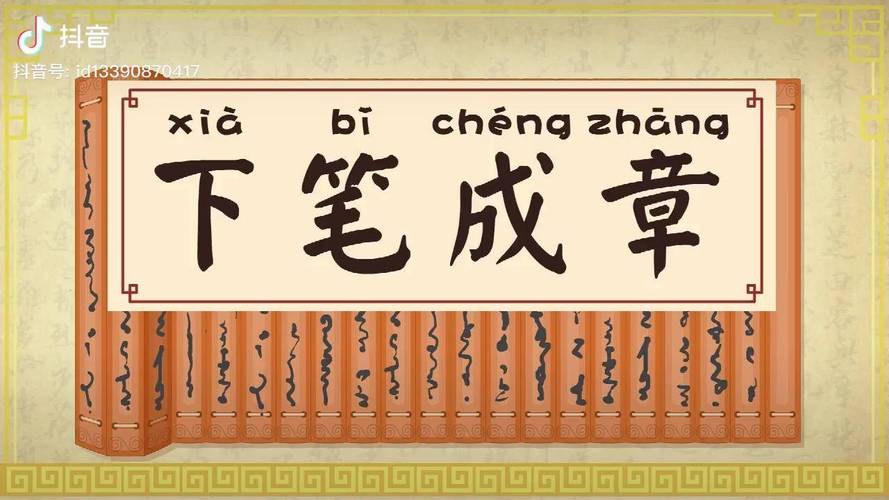 抖音
抖音号: id13390870417
xià bǐ chéng zhāng
下笔成章